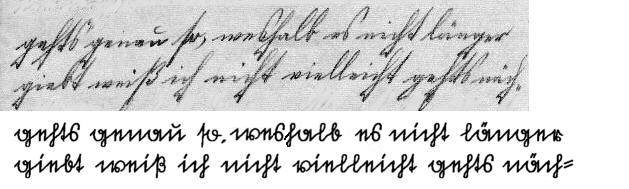 gehts genau so, weshalb es nicht länger
giebt weiß ich nicht vielleicht gehts näch-
gehts genau so, weshalb es nicht länger
giebt weiß ich nicht vielleicht gehts näch=